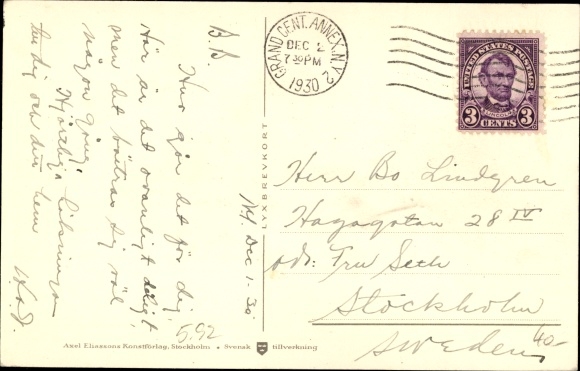 B.B.
Hur går det för dig
Här är det ovanligt dåligt,
men det bättras sig väl
någon gång.
Hjärtliga hälsningar
till dig och din
W. o J.
N.Y. Dec 1-30
5.92
GRAND CENT. ANNEX. N.Y.
DEC 2
7 30 PM
1930
2
UNITED STATES POSTAGE
LINCOLN
3 CENTS 3
LYXBREVKORT
Herr Bo Lindgren
Hagagatan 28 IV
adr: Fru Seth
Stockholm
Sweden
40-
Axel Eliassons Konstförlag, Stockholm • Svensk tillverkning